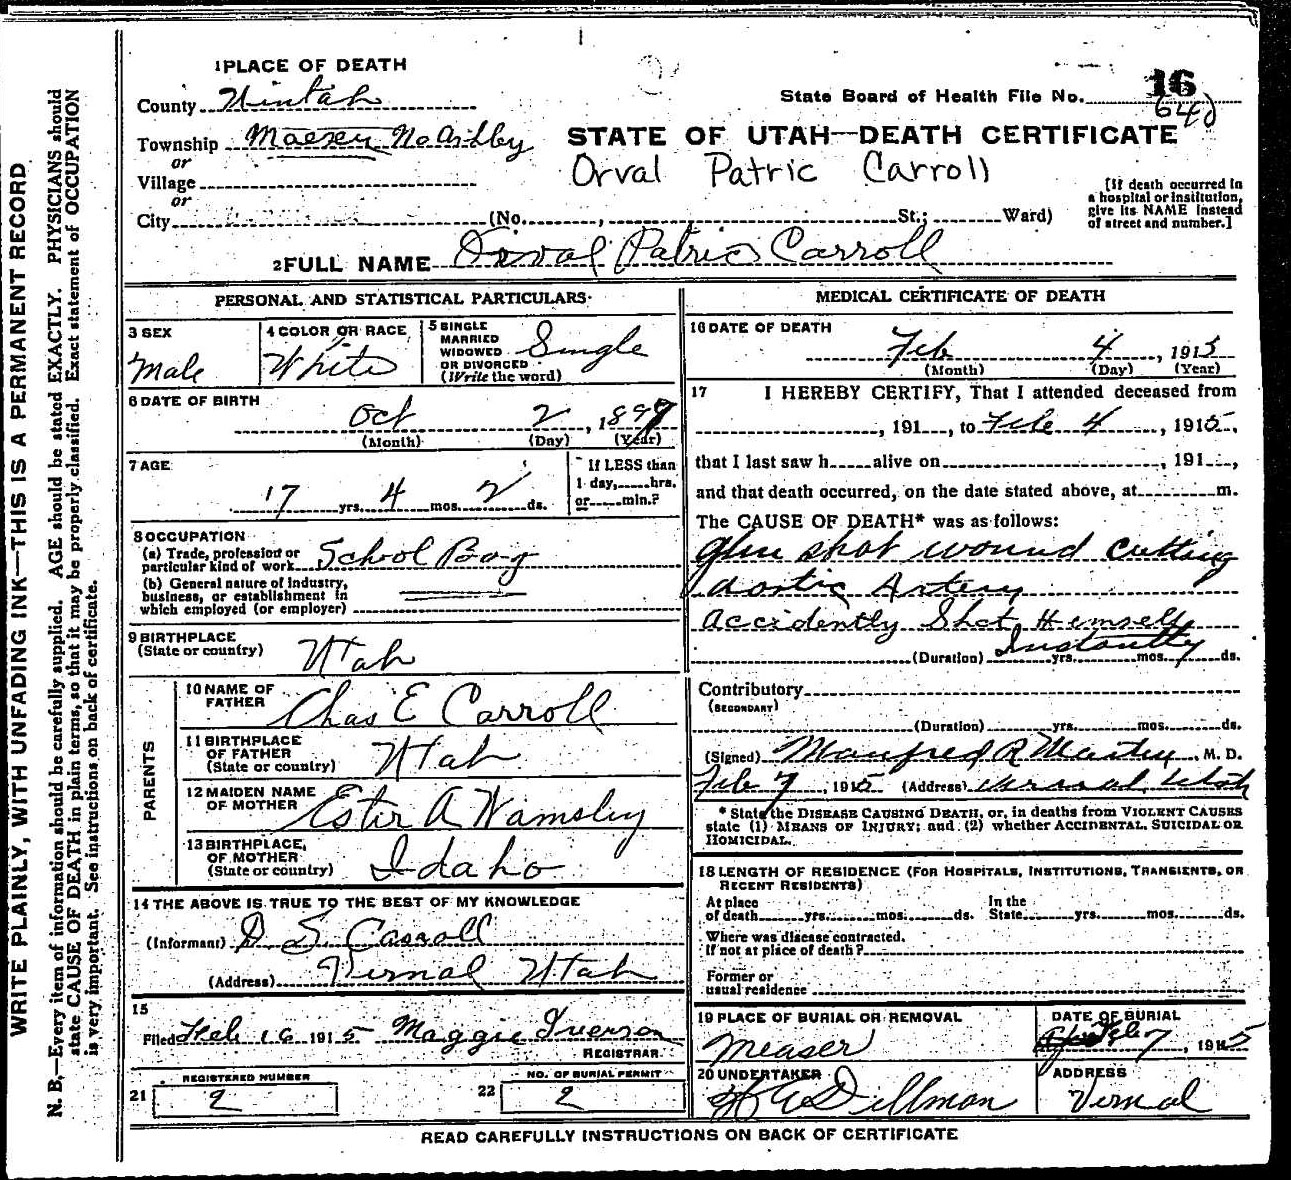 WRITE PLAINLY, WITH UNFADING INK—THIS IS A PERMANENT RECORD
N. B.—Every item of information should be carefully supplied. AGE should be stated EXACTLY. PHYSICIANS should
state CAUSE OF DEATH in plain terms, so that it may be properly classified. Exact statement of OCCUPATION
is very important. See instructions on back of certificate.
1 PLACE OF DEATH
County Uintah
State Board of Health File No. 16
640
Township Maeser No Ashley
or
Village
or
City (No. , St.; Ward)
STATE OF UTAH—DEATH CERTIFICATE
Orval Patric Carroll
[If death occurred in
a hospital or institution,
give its NAME instead
of street and number.]
2 FULL NAME Orval Patric Carroll
PERSONAL AND STATISTICAL PARTICULARS
3 SEX
Male
4 COLOR OR RACE
White
5 SINGLE
MARRIED
WIDOWED
OR DIVORCED
(Write the word)
Single
6 DATE OF BIRTH
Oct 2, 1897
(Month) (Day) (Year)
7 AGE
17 yrs. 4 mos. 2 ds.
If LESS than
1 day, hrs.
or min.?
8 OCCUPATION
(a) Trade, profession or
particular kind of work School Boy
(b) General nature of industry,
business, or establishment in
which employed (or employer)
9 BIRTHPLACE
(State or country) Utah
PARENTS
10 NAME OF
FATHER Chas E Carroll
11 BIRTHPLACE
OF FATHER
(State or country) Utah
12 MAIDEN NAME
OF MOTHER Ester A Wamsley
13 BIRTHPLACE,
OF MOTHER
(State or country) Idaho
14 THE ABOVE IS TRUE TO THE BEST OF MY KNOWLEDGE
(Informant) D S Carroll
(Address) Vernal Utah
15
Filed Feb 16 1915 Maggie Iverson
REGISTRAR
REGISTERED NUMBER
21 2
NO. OF BURIAL PERMIT
22 2
MEDICAL CERTIFICATE OF DEATH
16 DATE OF DEATH
Feb 4, 1915
(Month) (Day) (Year)
17 I HEREBY CERTIFY, That I attended deceased from
, 191 , to Feb 4, 1915,
that I last saw h alive on , 191 ,
and that death occurred, on the date stated above, at m.
The CAUSE OF DEATH* was as follows:
Gun shot wound cutting
aortic Artery
Accidently Shot Himself
(Duration) Instantly yrs. mos. ds.
Contributory
(SECONDARY)
(Duration) yrs. mos. ds.
(Signed) Manfred R Martin, M. D.
Feb 7, 1915 (Address) Vernal Utah
* State the DISEASE CAUSING DEATH, or, in deaths from VIOLENT CAUSES
state (1) MEANS OF INJURY; and (2) whether ACCIDENTAL, SUICIDAL OR
HOMICIDAL.
18 LENGTH OF RESIDENCE (FOR HOSPITALS, INSTITUTIONS, TRANSIENTS, OR
RECENT RESIDENTS)
At place In the
of death yrs. mos. ds. State yrs. mos. ds.
Where was disease contracted,
If not at place of death?
Former or
usual residence
19 PLACE OF BURIAL OR REMOVAL
Measer
DATE OF BURIAL
Feb 7, 1915
20 UNDERTAKER
Dillman
ADDRESS
Vernal
READ CAREFULLY INSTRUCTIONS ON BACK OF CERTIFICATE